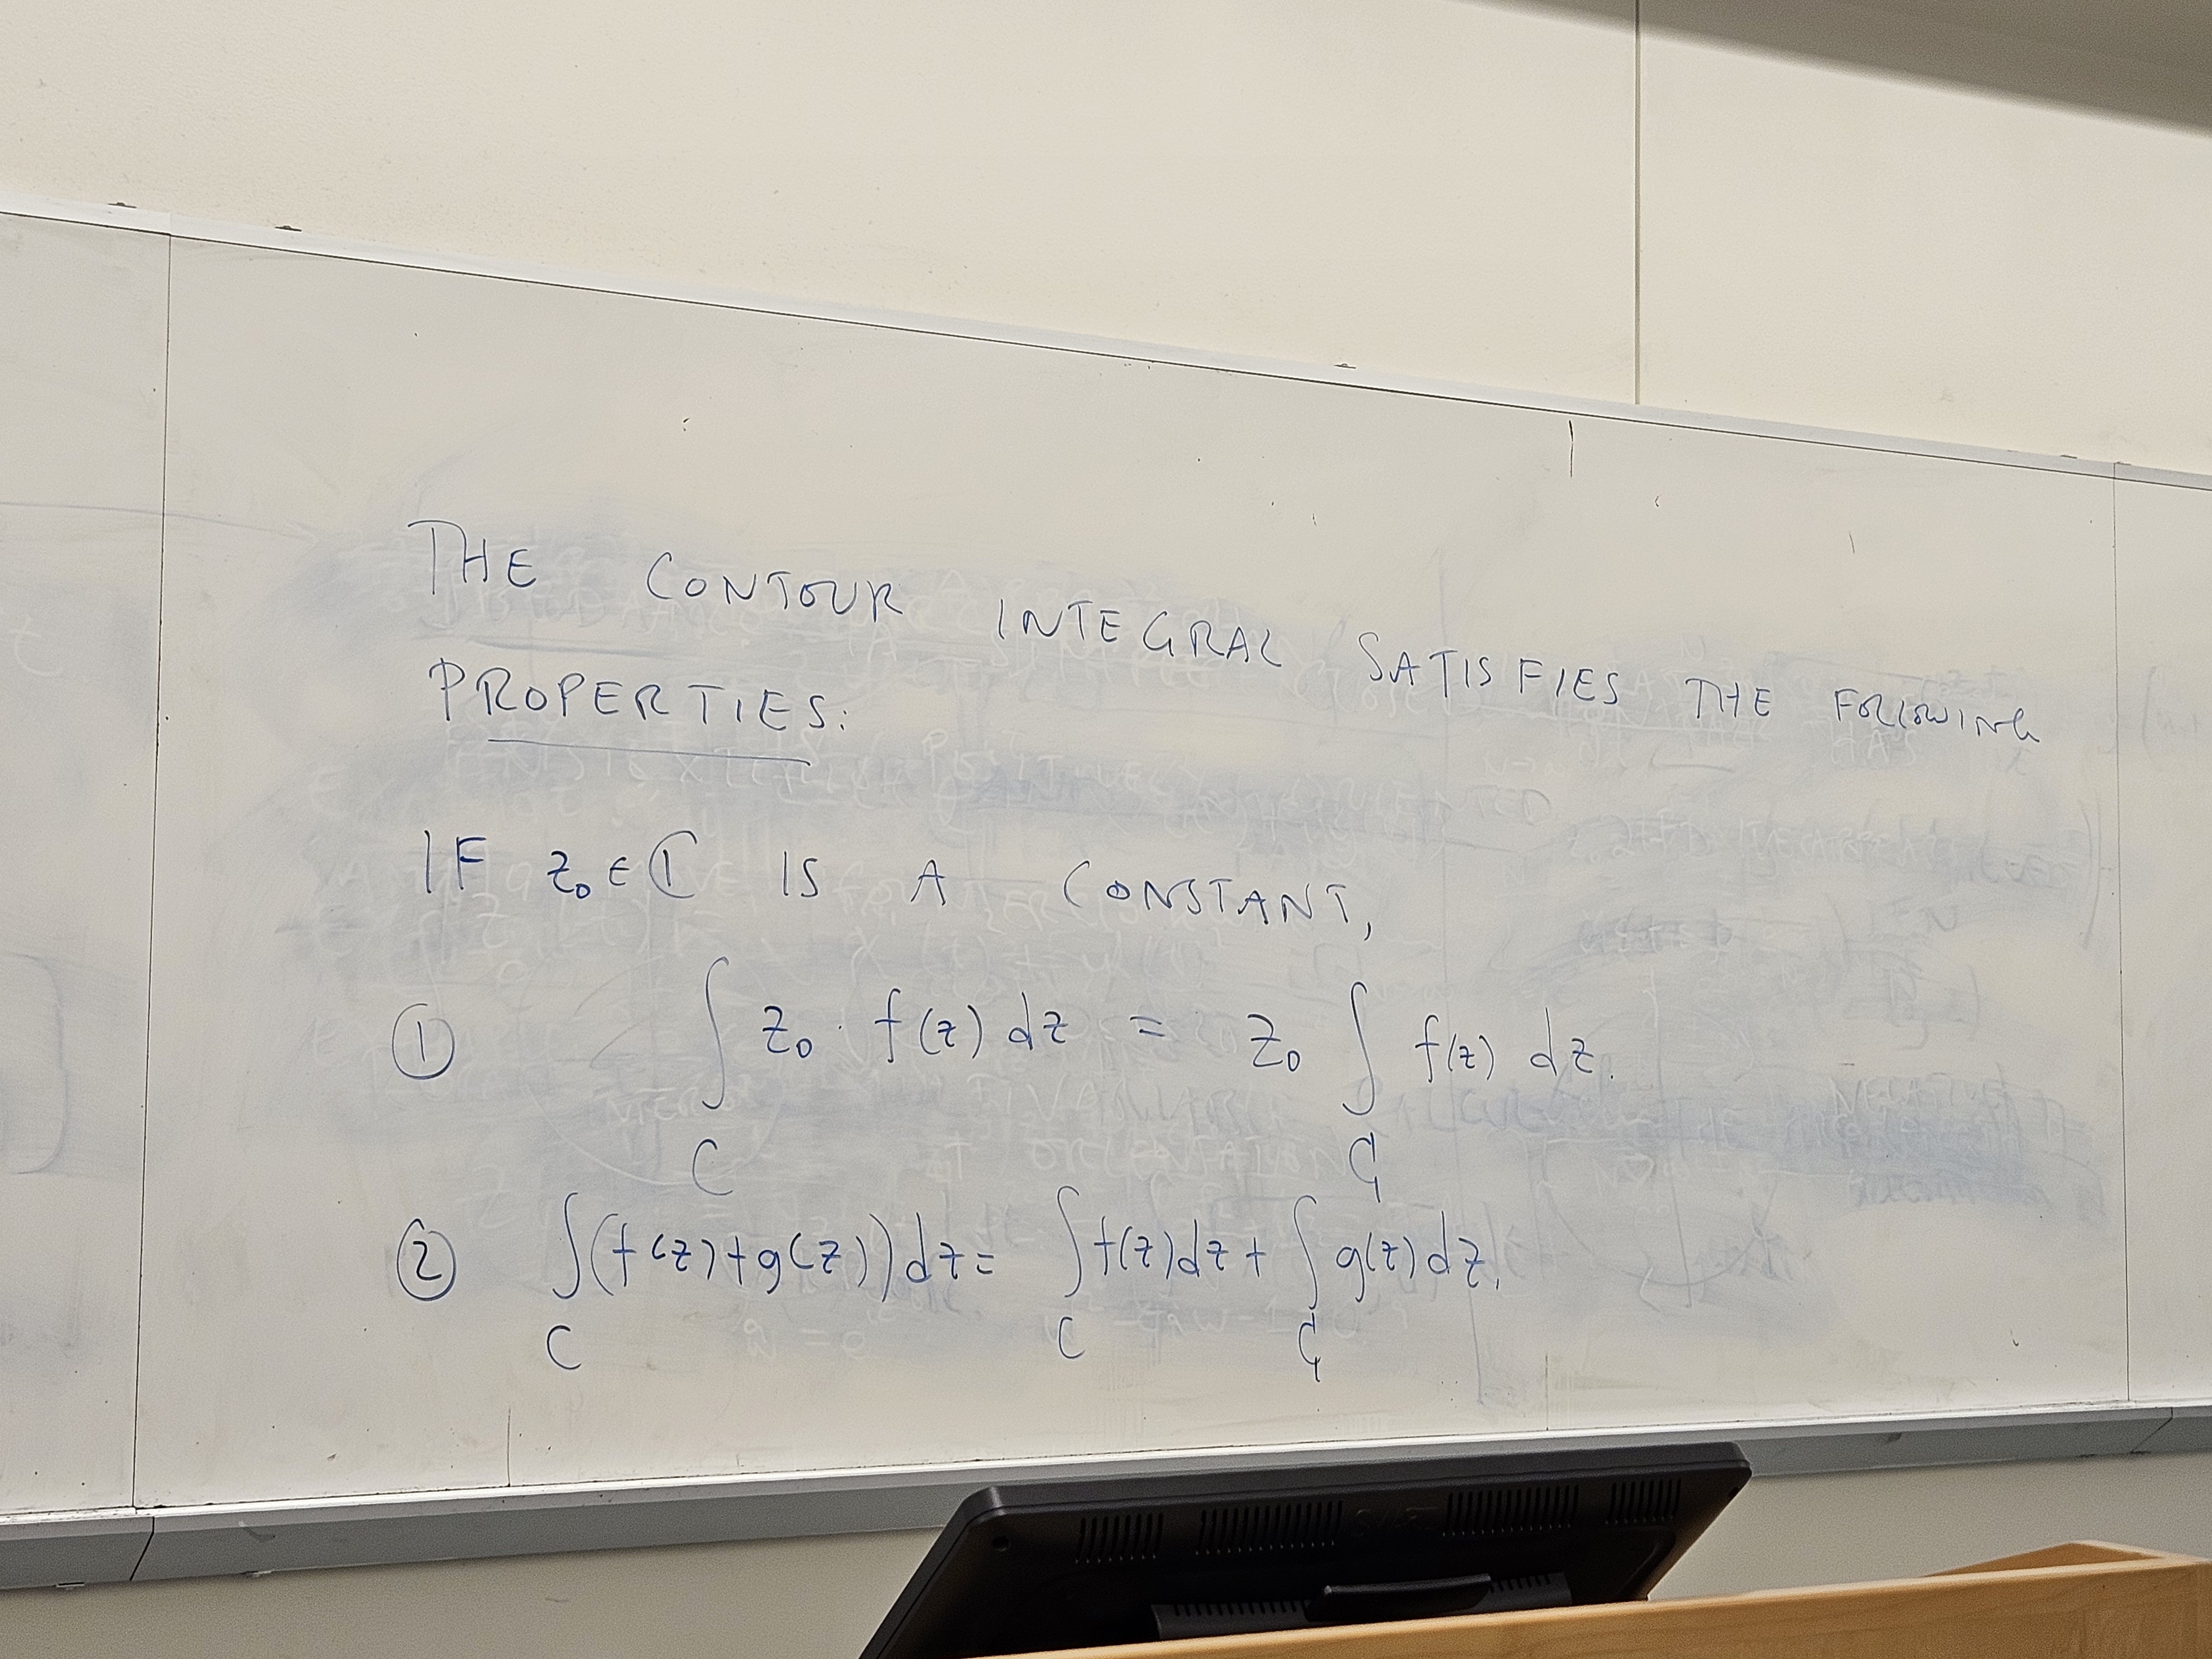 THE CONTOUR INTEGRAL SATISFIES THE FOLLOWING
PROPERTIES:
IF z₀ ∈ ℂ IS A CONSTANT,
① ∫_C z₀ · f(z) dz = z₀ ∫_C f(z) dz.
② ∫_C (f(z)+g(z))dz = ∫_C f(z)dz + ∫_C g(z)dz.